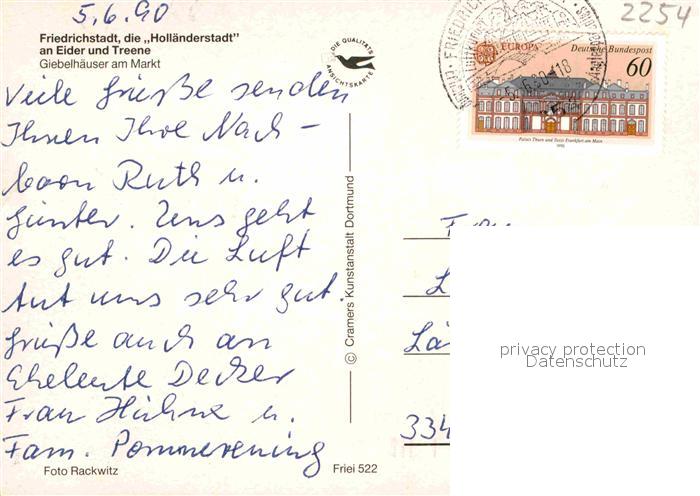 5.6.90
2254
Friedrichstadt, die „Holländerstadt"
an Eider und Treene
Giebelhäuser am Markt
DIE QUALITÄTS
ANSICHTSKARTE
EUROPA
Deutsche Bundespost
60
Palais Thurn und Taxis Frankfurt am Main
1990
Viele Grüße senden
Ihnen Ihre Nach-
barn Ruth u.
Günter. Uns geht
es gut. Die Luft
tut uns sehr gut.
Grüße auch an
Eheleute Decker
Frau Hühne u.
Fam. Pommerening
© Cramers Kunstanstalt Dortmund
Frau
L
Lä
334
privacy protection
Datenschutz
Foto Rackwitz
Friei 522